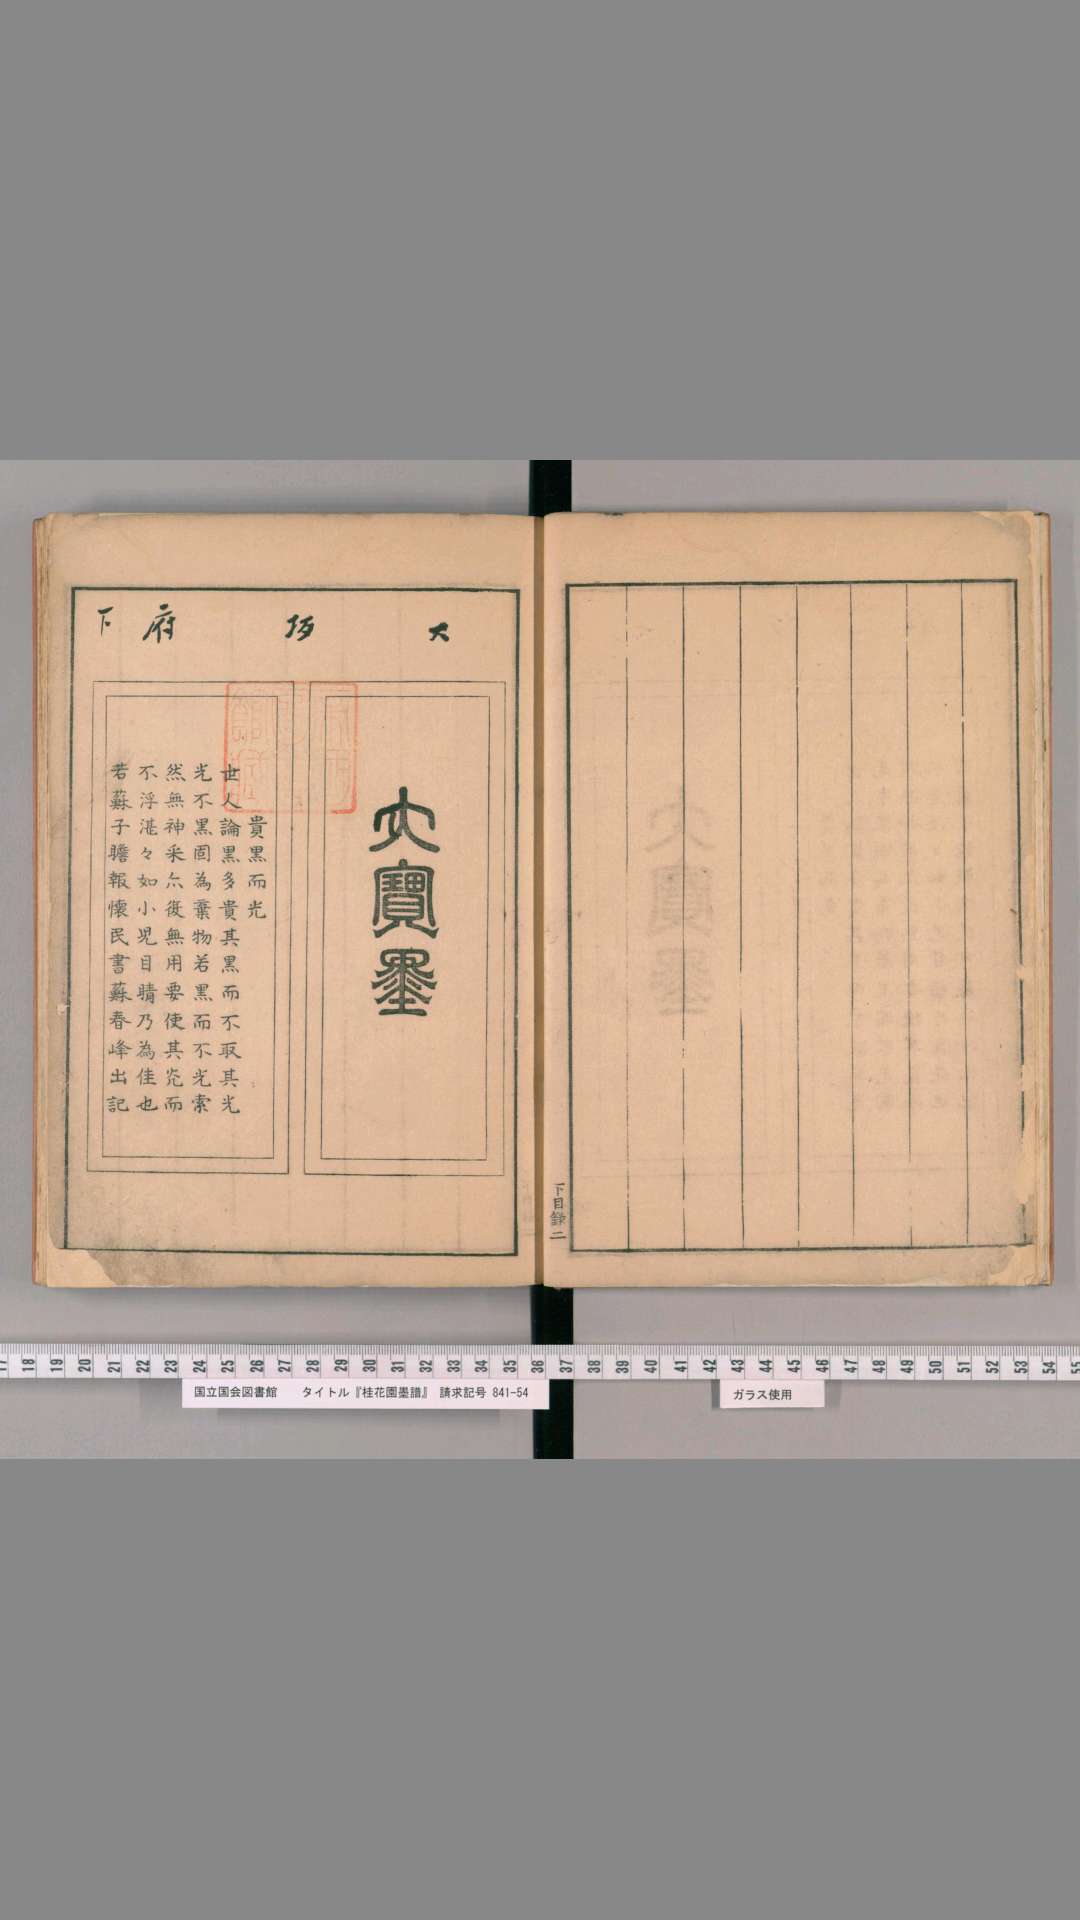 下目録 二
大坂府下
大寶墨
貴黒而光
世人論黒多貴其黒而不取其光
光不黒固為棄物若黒而不光索
然無神采亦復無用要使其光而
不浮湛々如小児目睛乃為佳也
若蘇子瞻報懐民書蘇春峰出記
17 18 19 20 21 22 23 24 25 26 27 28 29 30 31 32 33 34 35 36 37 38 39 40 41 42 43 44 45 46 47 48 49 50 51 52 53 54 55
国立国会図書館 タイトル『桂花園墨譜』 請求記号 841-54
ガラス使用